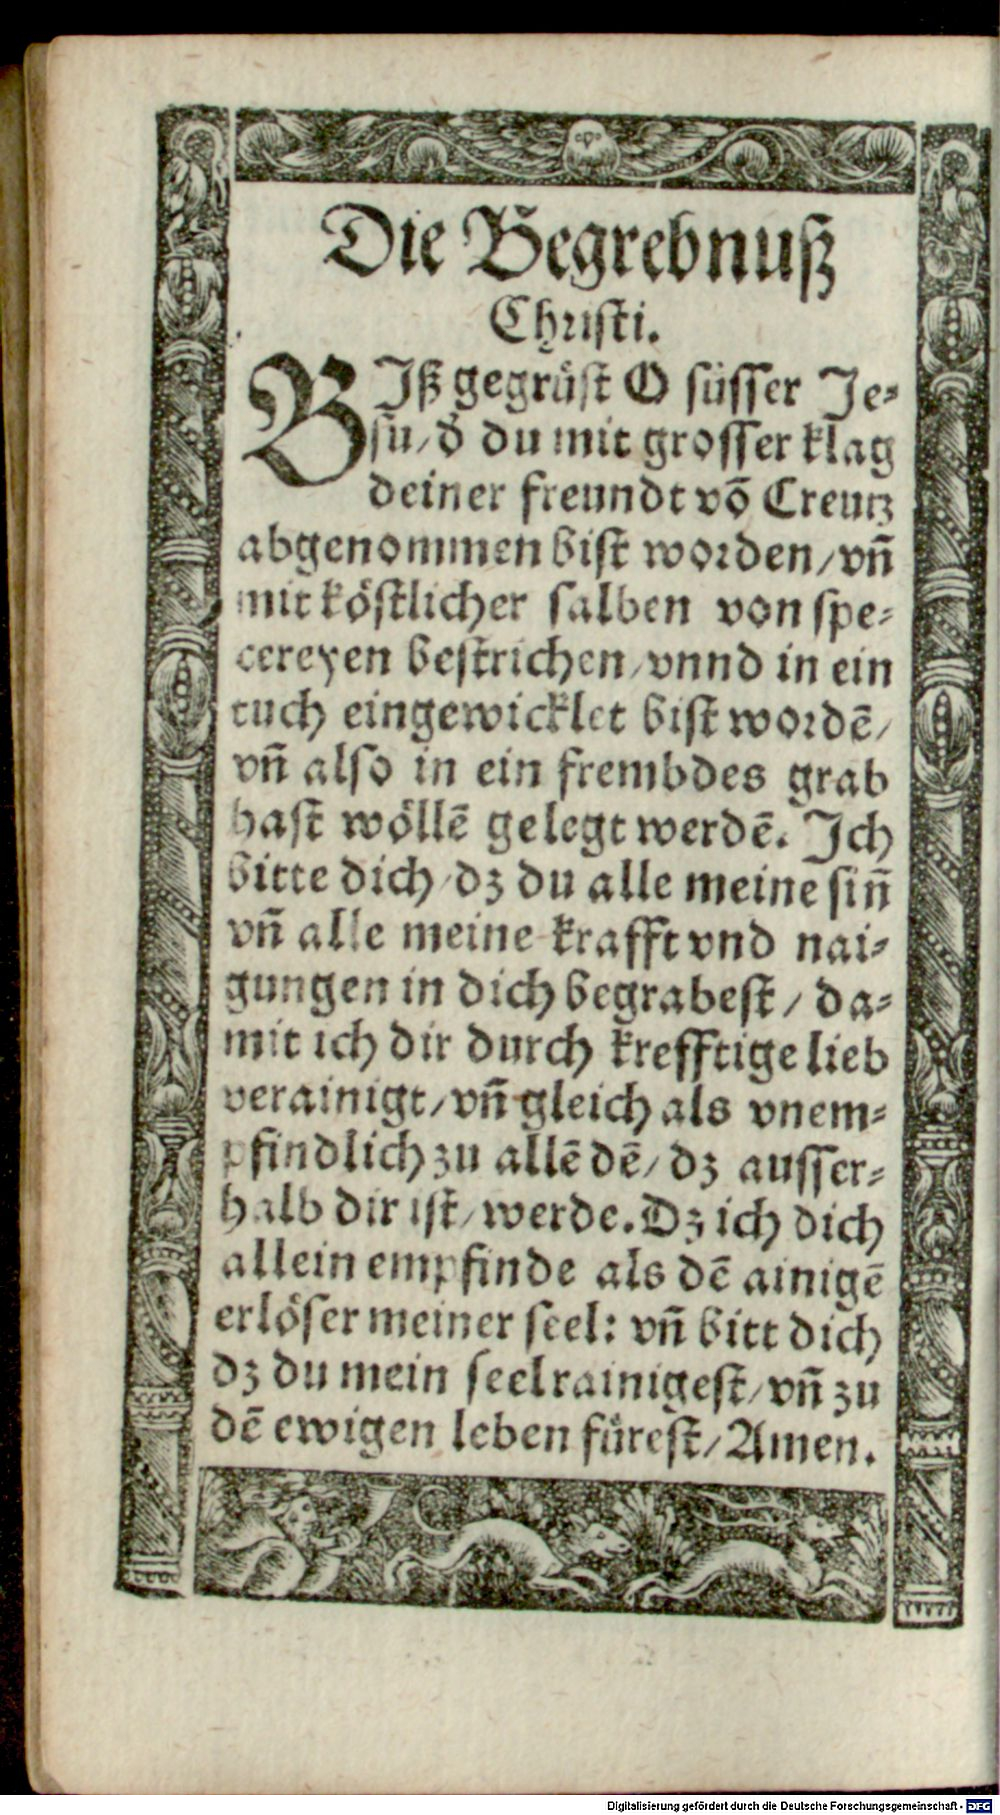 Die Begrebnuß
Christi.
BIß gegrüst O süsser Je⸗
su/ đ du mit grosser klag
deiner freundt võ Creutz
abgenommen bist worden/ vñ
mit köstlicher salben von spe⸗
cereyen bestrichen/ vnnd in ein
tuch eingewicklet bist wordẽ/
vñ also in ein frembdes grab
hast wöllẽ gelegt werdẽ. Ich
bitte dich/ dz du alle meine siñ
vñ alle meine krafft vnd nai⸗
gungen in dich begrabest/ da⸗
mit ich dir durch krefftige lieb
verainigt/ vñ gleich als vnem⸗
pfindlich zu allẽ dẽ/ dz ausser⸗
halb dir ist/ werde. Dz ich dich
allein empfinde als dẽ ainigẽ
erlöser meiner seel: vñ bitt dich
dz du mein seel rainigest/ vñ zu
dẽ ewigen leben fürest/ Amen.
Digitalisierung gefördert durch die Deutsche Forschungsgemeinschaft - DFG